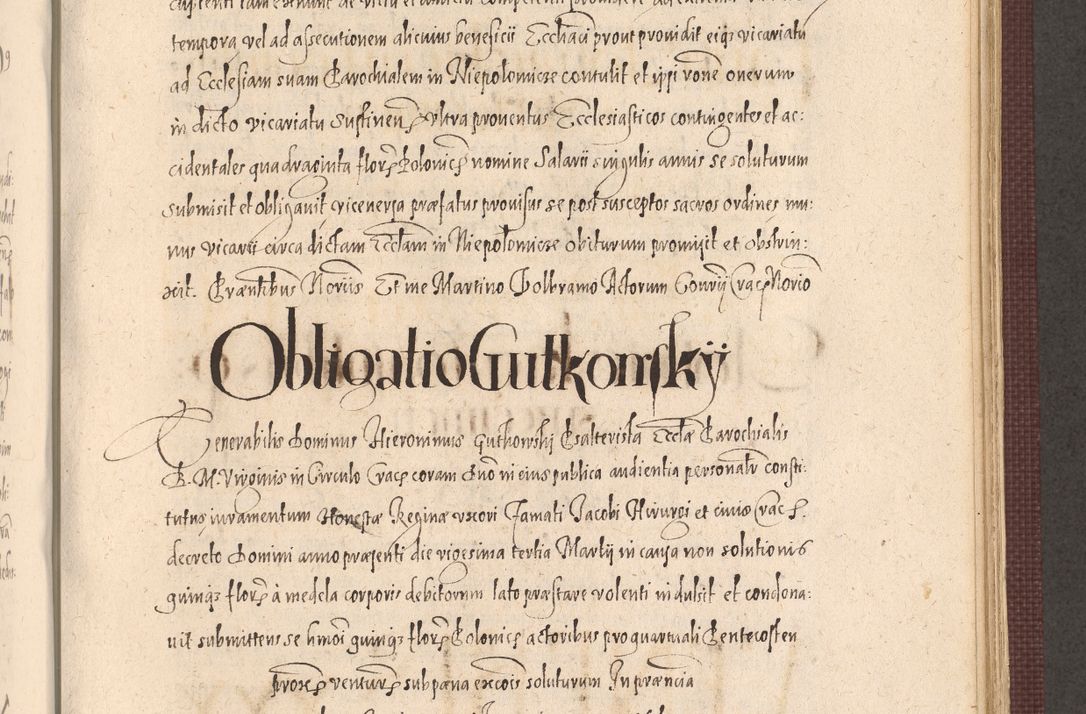 tempora vel ad assecutionem alicuius beneficii Eccliaci prout providit eiq3 vicariatu
ad Ecclesiam suam Parochialem in Niepolomicze contulit et ipsi rone onerum
in dicto vicariatu sustinen et ultra proventus Ecclesiasticos contingentes et ac:
cidentales quadraginta floren Polonicales nomine Salarii singulis annis se soluturum
submisit et obligavit viceversa præfatus provisus se post susceptos sacros ordines mu:
nus vicarii circa dictam Ecclam in Niepolomicze obiturum promisit et obstrin:
xit. Præntibus Noriis Et me Martino Dolbramo Actorum Conrij Crac Norio
Obligatio Gutkowskÿ
Venerabilis Dominus Hieronimus Gutkowski Psalterista Eccle Parochialis
B. M. Virginis in Circulo Crac coram Dno in eius publica audientia personalr consti:
tutus iuramentum Honestæ Reginæ uxori Famati Jacobi Hirurgi et civis Crac
decreto Domini anno præsenti die vigesima tertia Martij in causa non solutionis
quinq3 floren à medela corporis debitorum lato præstare volenti indulsit et condona:
vit submittens se hmoi quinq3 floren Polonic actoribus pro quartuali Pentecosten
prox ventur sub pæna excois soluturum In præncia